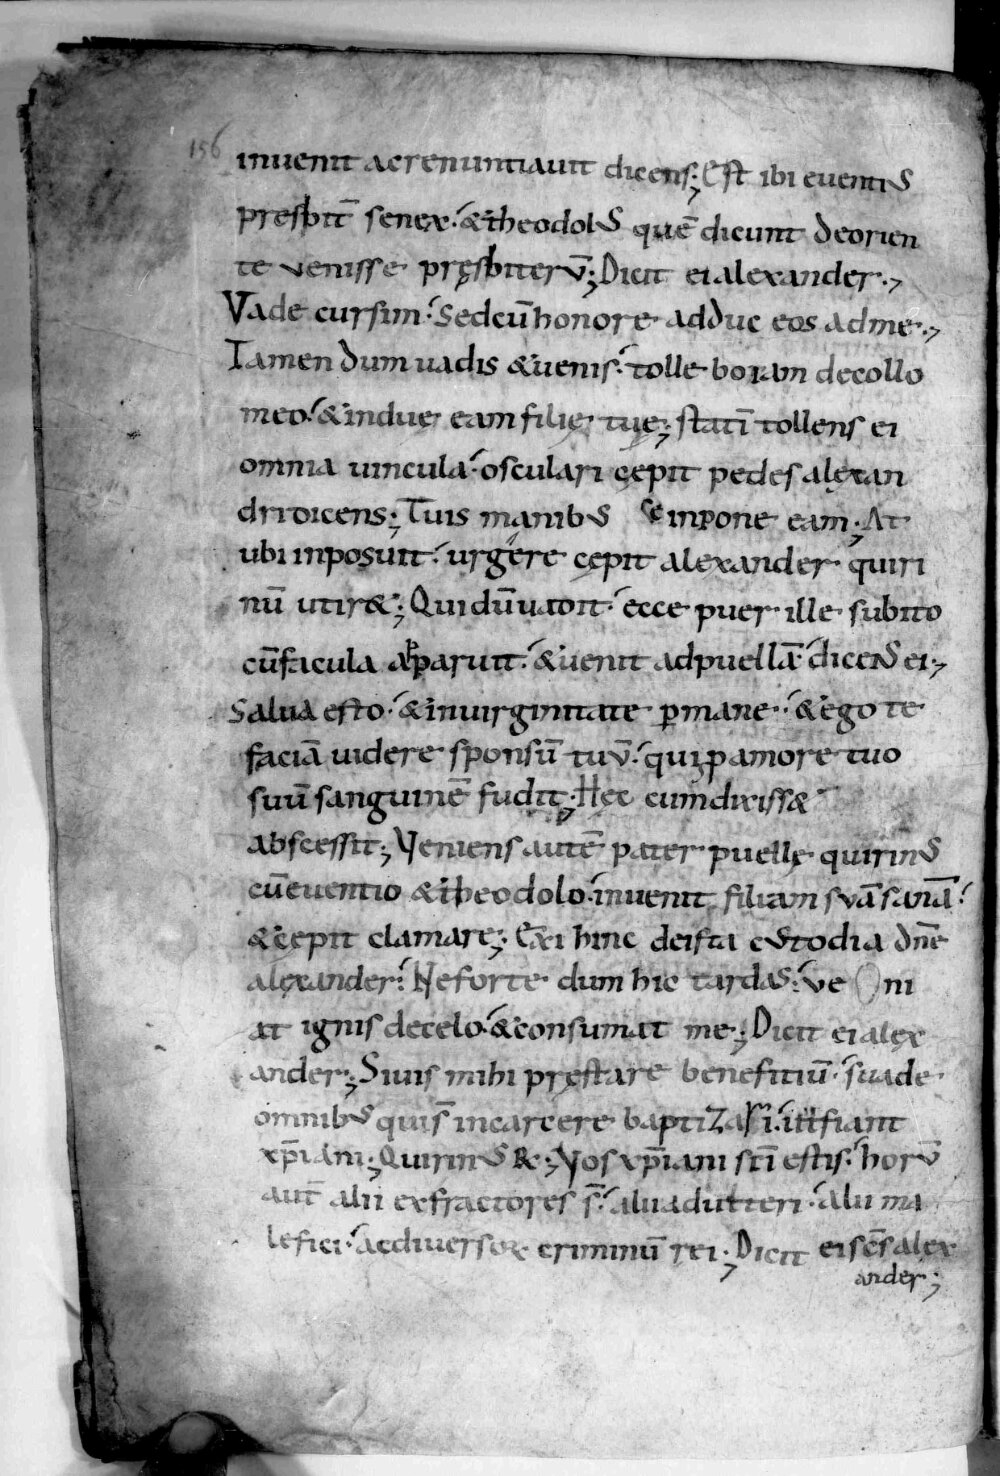 156
inuenit ac renuntiauit dicens; Est ibi euentiuS
presbit̄ senex. & theodoluS quē dicunt de orien
te venisse pręsbiterū; Dicit ei alexander.,
Vade cursim. Sed cū honore adduc eos ad me.,
Tamen dum uadis & uenis. tolle boiam de collo
meo. & indue eam filię tuę; statī tollens ei
omnia uincula. osculari cępit pedes alexan
dri dicens; Tuis manibuS inpone eam; At
ubi inposuit. urgere cępit alexander quiri
nū ut ir&; Qui dū uadit. ecce puer ille subito
cū facula apparuit. & uenit ad puellā. dicenS ei;
Salua esto. & in uirginitate ꝑmane. & ego te
faciā uidere sponsū tuū. qui ꝓ amore tuo
suū sanguinē fudit; Hęc cum dixiss&
abscessit; Veniens autē pater puellę quirinuS
cū euentio & theodolo. inuenit filiam suā sanā.
& cępit clamare; Exi hinc de ista cuStodia dn̄e
alexander. Ne forte dum hic tardaS. ve ni
at ignis de celo. & consumat me; Dicit ei alex
ander; Si uis mihi pręstare benefitiū. suade
omnibuS qui s̄ in carcere baptizari. ut fiant
xp̄iani; QuirinuS R&; Vos xp̄iani sc̄i estis. horū
aut̄ alii exfractores s̄. alii adulteri. alii ma
lefici. ac diuersoꝝ criminū rei; Dicit ei sc̄s alex
ander;